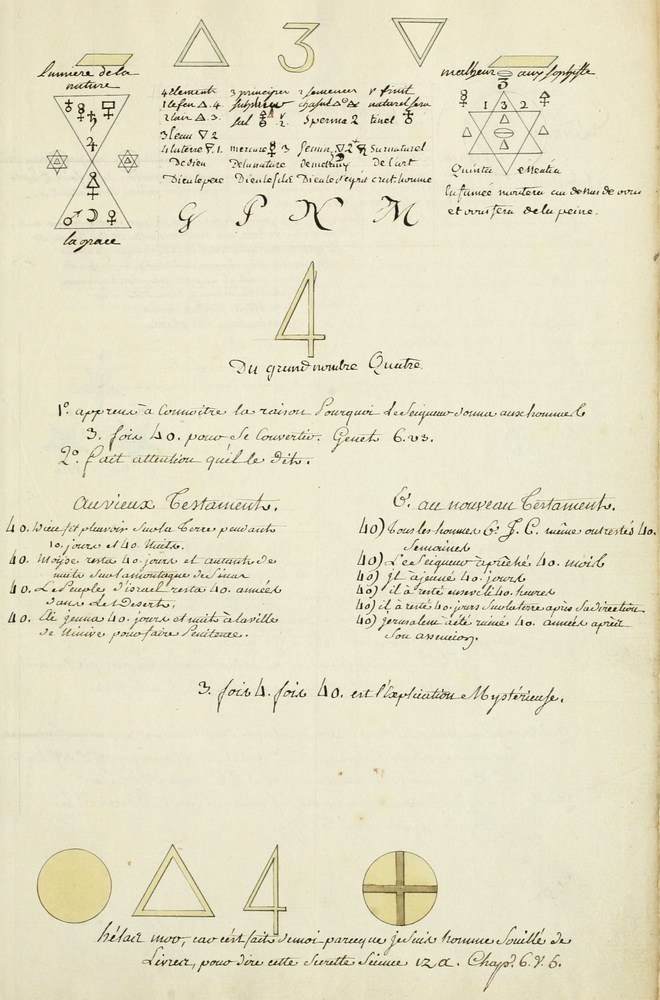 3
lumiere de la
nature
la grace
4 elements 3 principes 2 semences 1 fruit
1 le feu 4 sulphre naturel sera
2 lair 3. sel 2. sperma 2 tinct
3 leau 2
4 la terre 1. mercure 3 semen 2 surnaturel
De dieu De la nature de l'art
Dieu le pere Dieu le fils Dieu le S'esprit c'est homme
G P N M
malheur aux sophiste
3
1 3 2
Quinta essentia
la fumée montera au dessus de vous
et vous fera de la peine.
4
Du grand nombre Quatre.
1º. apprens à connoitre la raison Pourquoi le Seigneur donna aux hommes
3. fois 40. pour se convertir. Genes 6. v3.
2º. fait attention qu'il le dit.
au vieux Testament.
40. Dieu fit pleuvoir sur la Terre pendant
40. jours et 40. Nuits.
40. Moÿse resta 40. jours et autant de
nuits sur la montagne de Sinai
40. Le Peuple d'israel resta 40. années
dans les Deserts.
40. jeuna 40. jours et nuits à la ville
de Ninive pour faire Penitence.
au nouveau Testament.
40) Tous les hommes J. C. même ont restés 40.
Semaines
40) Le Seigneur à preché 40. mois
40) Il à jeuné 40. jours
40) il à resté enseveli 40. heures
40) il à resté 40. jours sur la terre après sa
40) Jerusalem à été ruiné 40. années après
son assension.
3. fois 4. fois 40. est l'explication Mystérieuse.
4
hélas moy, car c'est fait de moi parceque je suis homme souillé de
Levres, pour dire cette secrette science Chap. 6. v. 5.